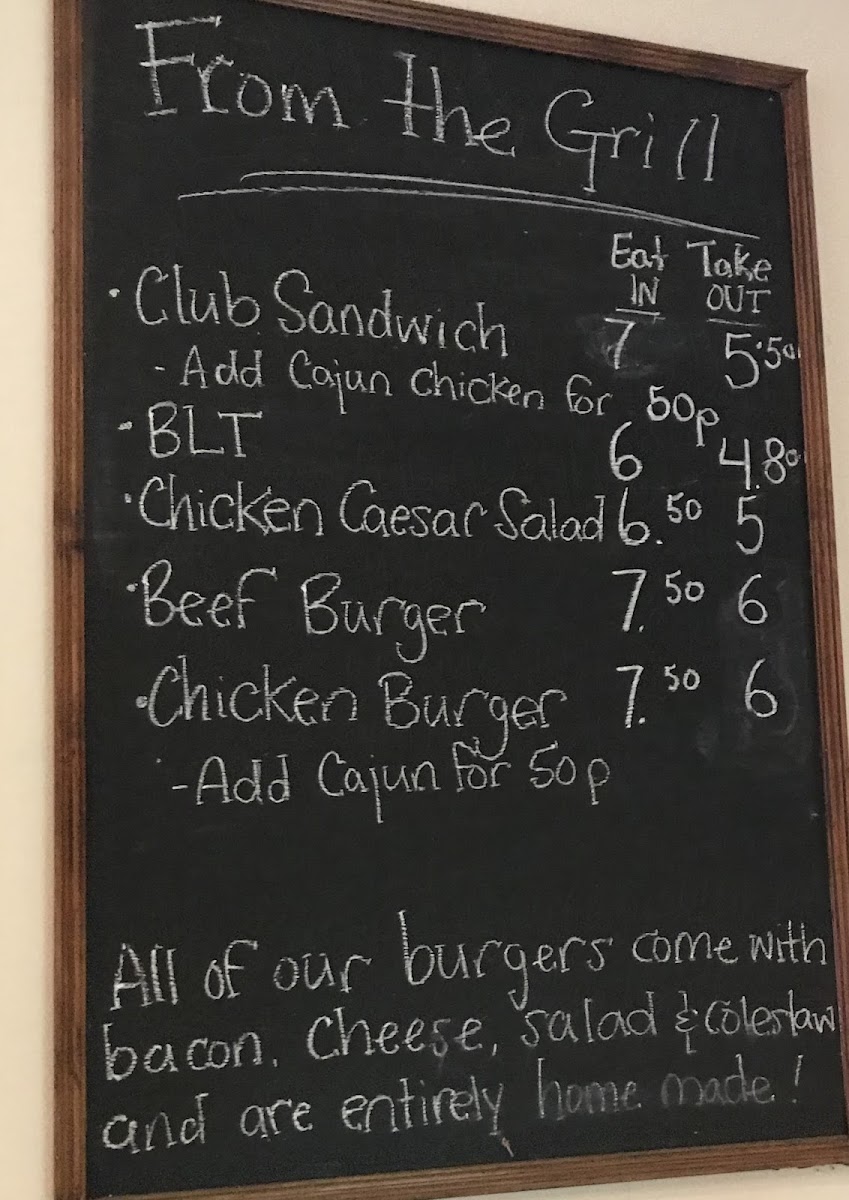 From the Grill
Eat Take
IN OUT
• Club Sandwich 7 5.50
- Add Cajun chicken for 50p
• BLT 6 4.80
• Chicken Caesar Salad 6.50 5
• Beef Burger 7.50 6
• Chicken Burger 7.50 6
- Add Cajun for 50p
All of our burgers come with
bacon, cheese, salad & coleslaw
and are entirely home made!